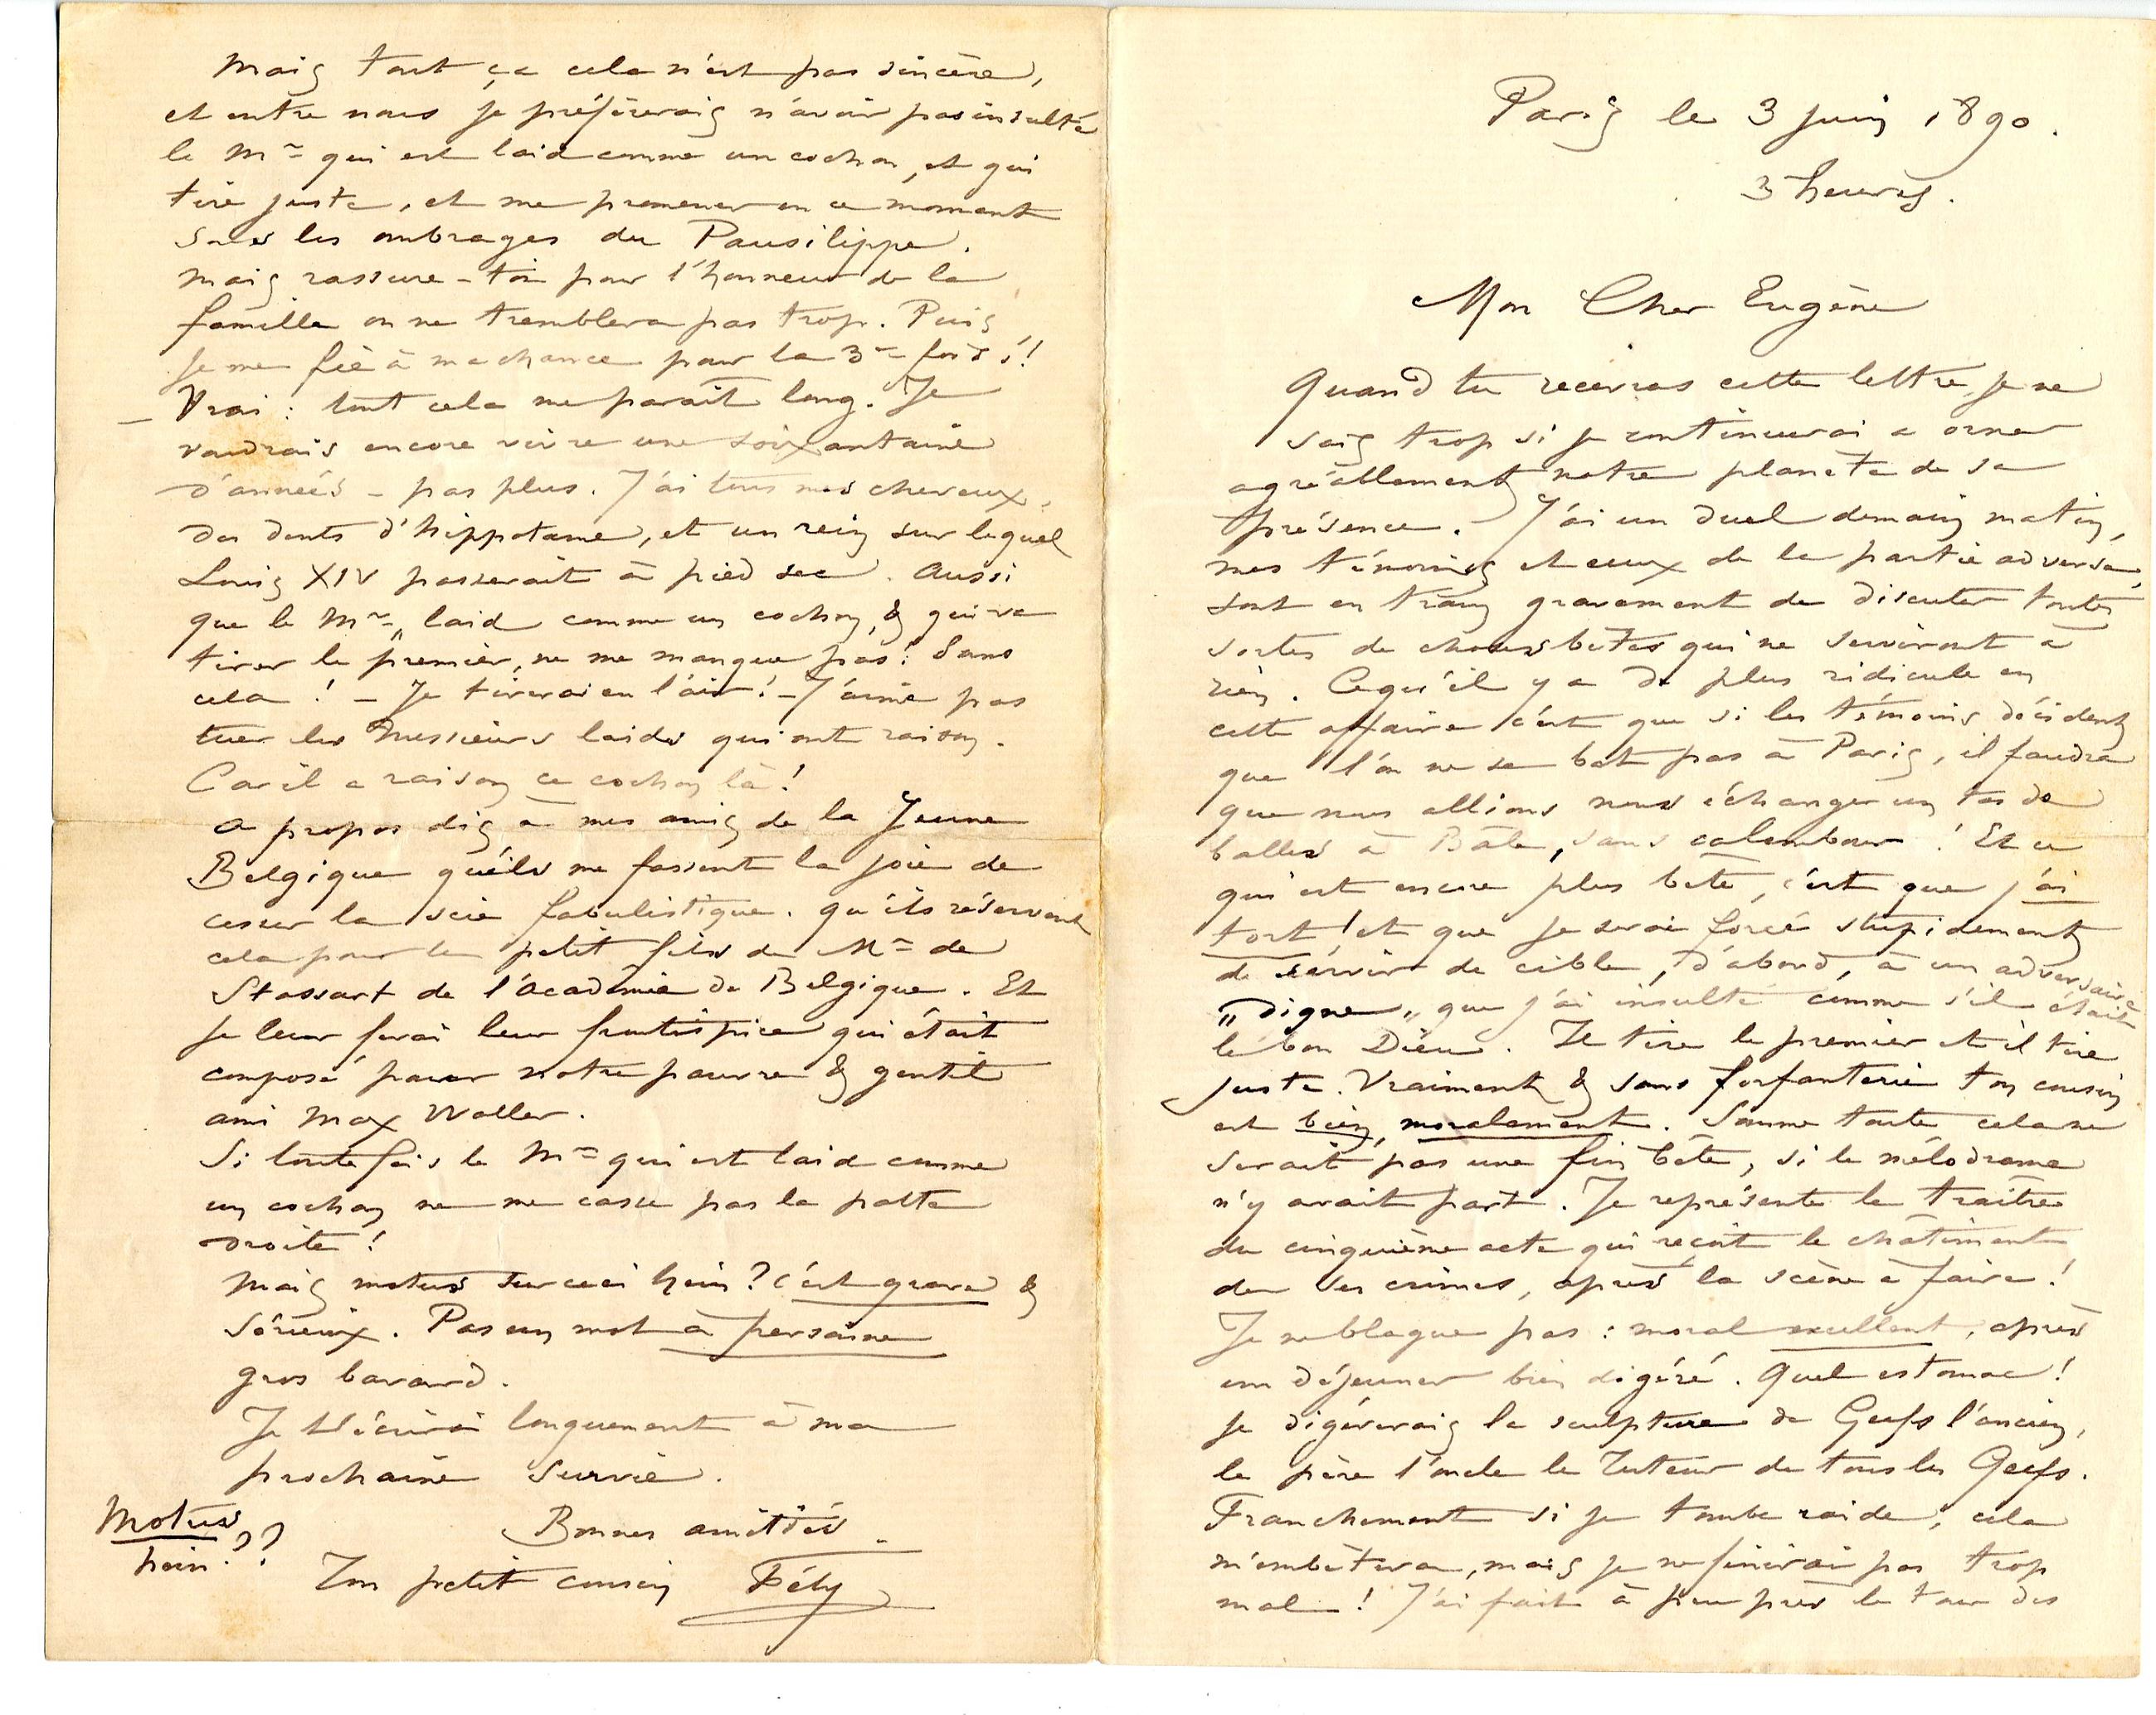 Paris le 3 juin 1890.
3 heures.
Mon Cher Eugène
Quand tu recevras cette lettre, je ne
sais trop si je continuerai a orner
agréablement notre planète de sa
présence. J'ai un duel demain matin,
mes témoins et ceux de la partie adverse,
sont en train gravement de discuter toutes
sortes de choses bêtes qui ne serviront à
rien. Ce qu'il y a de plus ridicule en
cette affaire c'est que si les témoins décident
que l'on ne se bat pas à Paris, il faudra
que nous allions nous échanger un tas de
balles à Bâle, sans calembour ! Et ce
qui est encore plus bête, c'est que j'ai
tort ! et que je serai forcé stupidement
de servir de cible, d'abord, à un adversaire
„digne„ que j'ai insulté comme s'il était
le bon Dieu. Il tire le premier et il tire
juste. Vraiment & sans forfanterie ton cousin
est bien, moralement. Somme toute cela ne
serait pas une fin bête, si le mélodrame
n'y avait part. Je représente le traître
du cinquième acte qui reçoit le châtiment
de ses crimes, après la scène à faire !
Je ne blague pas : moral excellent, après
un déjeuner bien digéré. Quel estomac !
je digérerais la sculpture de Geefs l'ancien,
le père l'oncle le tuteur de tous les Geefs.
Franchement si je tombe raide, cela
m'embêtera, mais je ne finirai pas trop
mal ! J'ai fait à peu près le tour des
Mais tout ça cela n'est pas sincère,
et entre nous je préférerais n'avoir pas insulté
le Mr qui est laid comme un cochon, et qui
tire juste, et me promener en ce moment
sous les ombrages du Pausilippe.
Mais rassure-toi pour l'honneur de la
famille on ne tremblera pas trop. Puis
je me fie à ma chance pour la 3me fois !!
– Vrai : tout cela me paraît long. Je
voudrais encore vivre une soixantaine
d'années – pas plus. J'ai tous mes cheveux,
des dents d'hippotame, et un rein sur lequel
Louis XIV passerait à pied sec. Aussi
que le Mr „ laid comme un cochon, & qui va
tirer le premier, ne me manque pas ! Sans
cela ! – Je tirerai en l'air ! – J'aime pas
tuer les Messieurs laids qui ont raison.
Car il a raison ce cochon là !
A propos dis à mes amis de la Jeune
Belgique qu'ils me fassent la joie de
cesser la scie fabulistique. qu'ils réservent
cela pour le petit fils de Mr de
Stassart de l'Académie de Belgique. Et
je leur ferai leur frontispice qui était
composé pour notre pauvre & gentil
ami Max Waller.
Si toutefois le Mr qui est laid comme
un cochon ne me casse pas la patte
droite !
Mais motus sur ceci hein ? c'est grave &
sérieux. Pas un mot à personne
gros bavard.
Je t'écrirai longuement à ma
prochaine survie.
Bonnes amitiés.
Ton petit cousin Fély
Motus
hein ??